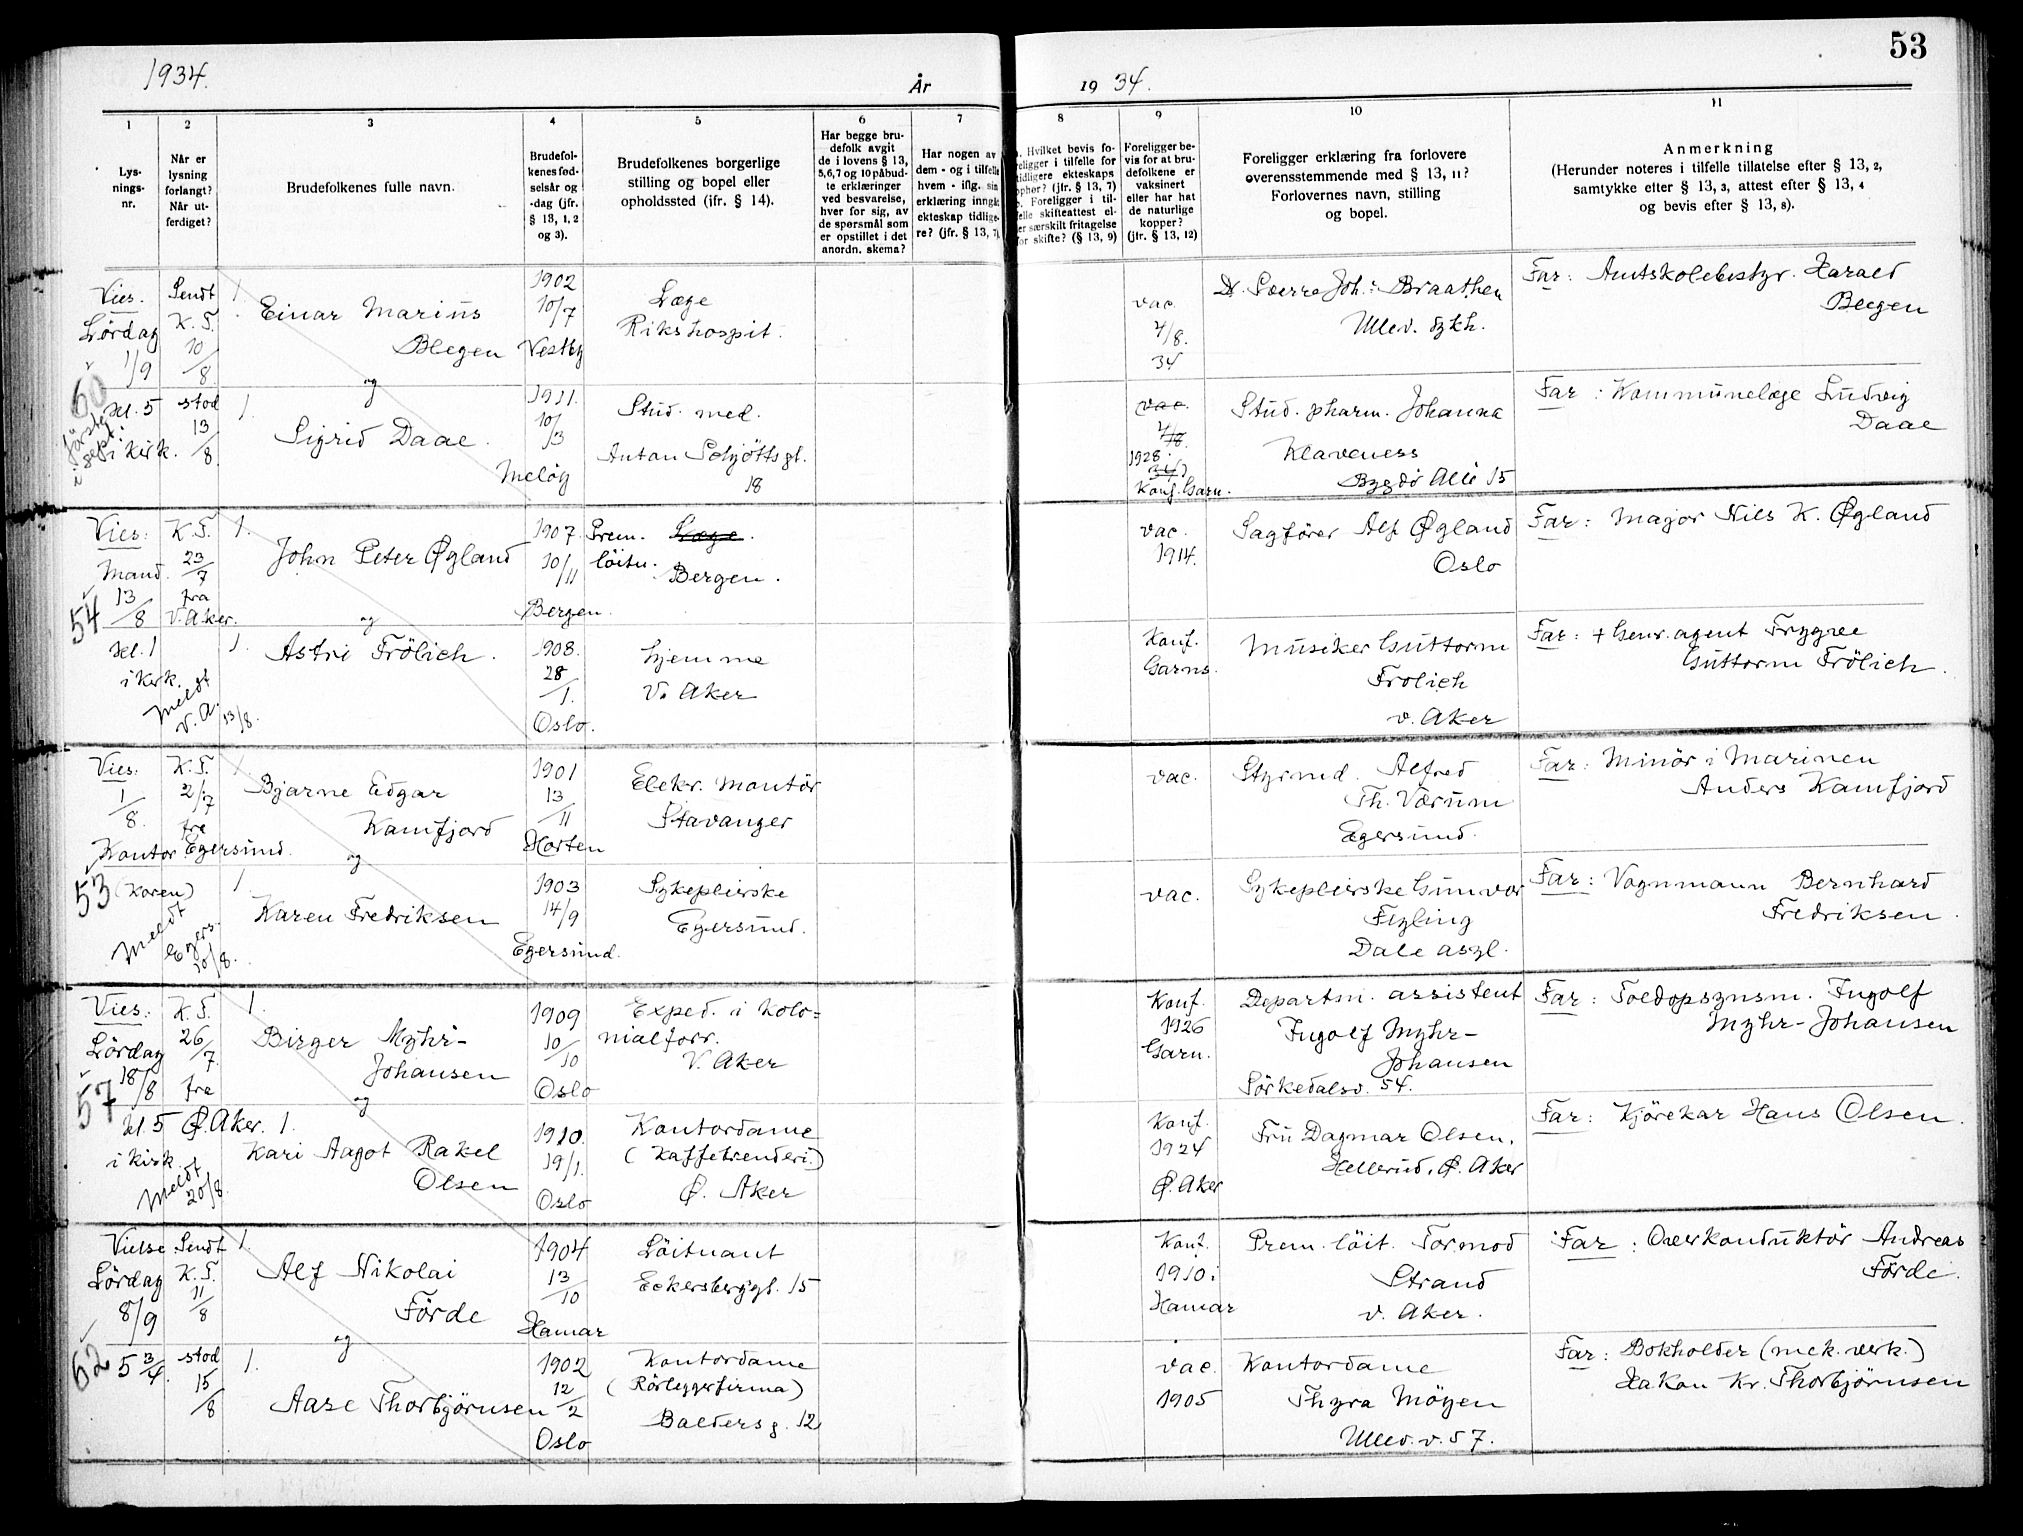 53
1934.
År
19 34.
1
2
3
4
5
6
7
8
9
10
11
Lys-
nings-
nr.
Når er
lysning
forlangt?
Når ut-
ferdiget?
Brudefolkenes fulle navn.
Brudefol-
kenes fød-
selsår og
-dag (jfr.
§ 13, 1, 2
og 3).
Brudefolkenes borgerlige
stilling og bopel eller
opholdssted (jfr. § 14).
Har begge bru-
defolk avgit
de i lovens § 13,
5,6,7 og 10 påbud-
te erklæringer
ved besvarelse,
hver for sig, av
de spørsmål som
er opstillet i det
anordn. skema?
Har nogen av
dem - og i tilfelle
hvem - iflg. sin
erklæring inngått
ekteskap tidlige-
re? (jfr. § 13, 7)
Hvilket bevis fo-
religger i tilfelle for
tidligere ekteskaps
ophør? (jfr. § 13, 7)
Foreligger i til-
felle skifteattest el-
er særskilt fritagelse
for skifte? (§ 13, 9)
Foreligger be-
vis for at bru-
defolkene er
vaksinert
eller har hat
de naturlige
kopper?
(jfr. § 13, 12)
Foreligger erklæring fra forlovere
overensstemmende med § 13, 11?
Forlovernes navn, stilling
og bopel.
Anmerkning
(Herunder noteres i tilfelle tillatelse efter § 13, 2,
samtykke efter § 13, 3, attest efter § 13, 4
og bevis efter § 13, 8).
60
Vies.
Lördag
1/9
kl. 5
i kirk.
förste
sept.
Sendt
K. T.
10/8
stod
13/8.
1.
Einar Marius
Blegen
og
1902
10/7
Vestby
Læge
Rikshospit.
vac.
4/8.
34
Dr. Sverre Joh. Braathen
Ullev. sykh.
Far: Amtskolebestyr. Harald
Blegen
1.
Sigrid Daae.
1911.
10/3
Meløy
Stud. med.
Anton Schjöttsgt.
18
vac.
4/8.
34
1928
Konf. Garn.
Stud. pharm. Johanna
Klaveness
Bygdö Allé 15
Far: Kommunelæge Ludvig
Daae
54
Vies:
Mand.
13/8
kl. 1
i kirk.
Meldt
V. A. 13/8.
K. T.
23/7
fra
V. Aker.
1.
John Peter Øgland
og
1907
10/11
Bergen.
Prem. Læge.
löitn.
Bergen.
vac.
1914.
Sagfører Alf Øgland
Oslo
Far: Major Nils K. Øgland
1.
Astri Frölich.
1908.
28/1.
Oslo.
hjemme
V. Aker
Konf.
Garns.
Musiker Guttorm
Frölich
v. Aker
Far: + Genr. agent Trygve
Guttorm Frölich.
53
Vies:
1/8.
Kontor
(Koren)
Meldt
Egers.
20/8.
K. T.
2/7
fra
Egersund.
1
Bjarne Edgar
Kamfjord
og
1901
13/11
Horten
Elekr. Montör
Stavanger
vac.
Styrmd. Alfred
Th. Værum
Egersund.
Far: Minör i Marinen
Anders Kamfjord
1
Karen Fredriksen
1903
14/9
Egersund.
Sykepleierske
Egersund.
vac.
Sykepleierske Gunvor
Fryling
Dale asyl.
Far: Vognmann Bernhard
Fredriksen.
57
Vies:
Lördag
18/8
kl. 5
i kirk.
Meldt
20/8.
K. T.
26/7.
fra
Ø. Aker.
1.
Birger Myhr-
Johansen
og
1909
10/10
Oslo
Exped. i Kolo=
nialforr.
V. Aker
Konf.
1926
Garn.
Departm. assistent
Ingolf Myhr-
Johansen
Sörkedalsv. 54.
Far: Toldopsynsm. Ingolf
Myhr-Johansen
1.
Kari Aagot Rakel
Olsen
1910.
19/1.
Oslo
Kontordame
(Kaffebrenderi.)
Ø. Aker
Konf.
1924
Ø. Aker
Fru Dagmar Olsen,
Hellerud, Ø. Aker
Far: Kjörekar Hans Olsen.
62
Vielse
Lördag
8/9
5 3/4.
Sendt
K. T.
11/8
stod
15/8
1
Alf Nikolai
Förde
og
1904
13/10
Hamar
Löitnant
Eckersberggt. 15
Konf.
1910 i
Hamar
Prem. löit. Tormod
Strand
v. Aker.
Far: Overkonduktör Andreas
Förde.
1.
Aase Thorbjörnsen
1902
12/2
Oslo
Kontordame
(Rörleggerfirma)
Baldersg. 12
vac.
1905
Kontordame
Thyra Möyen
Ullev. v. 57.
Far: Bokholder (mek. verk.)
Hakon Kr. Thorbjörnsen